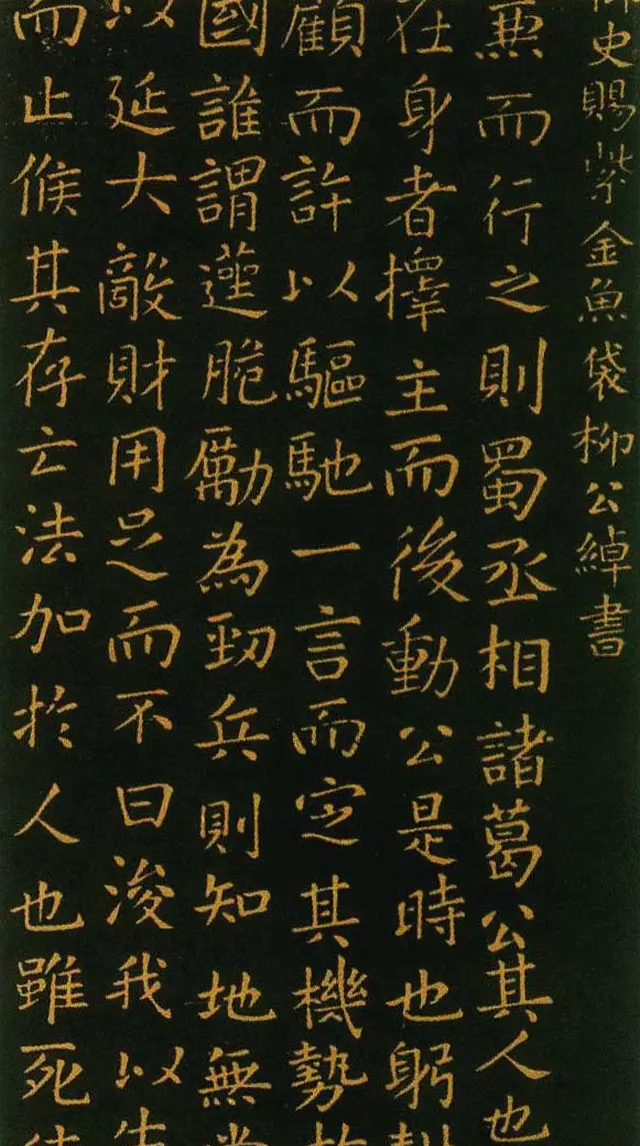 史賜紫金魚袋柳公綽書
兼而行之則蜀丞相諸葛公其人也
在身者擇主而後動公是時也躬
顧而許以驅馳一言而定其機勢
國誰謂脆勵為勁兵則知地無
以延大敵財用足而不曰浚我以生
而止候其存亡法加於人也雖死